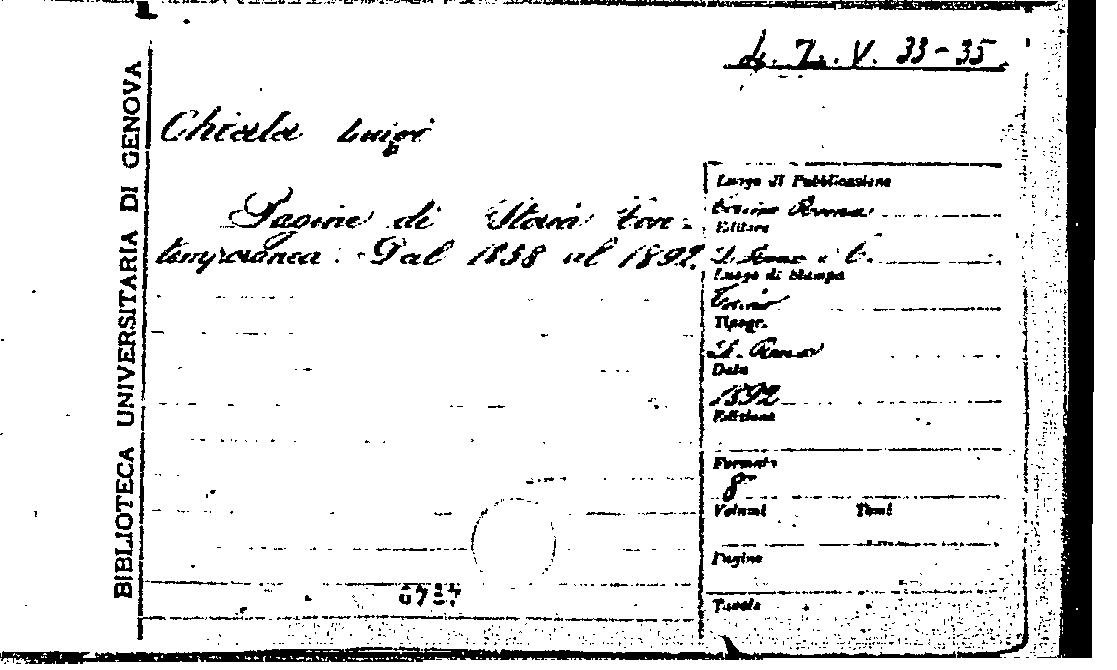 4. Z. V. 33-35.
BIBLIOTECA UNIVERSITARIA DI GENOVA
Chiala Luigi
Pagine di Storia Con-
temporanea. Dal 1858 al 1892.
Luogo di Pubblicazione
Torino Roma
Editore
L. Roux e C.
Luogo di Stampa
Torino
Tipogr.
L. Roux
Data
1892
Edizione
Formato
8°
Volumi Tomi
Pagine
Tavole